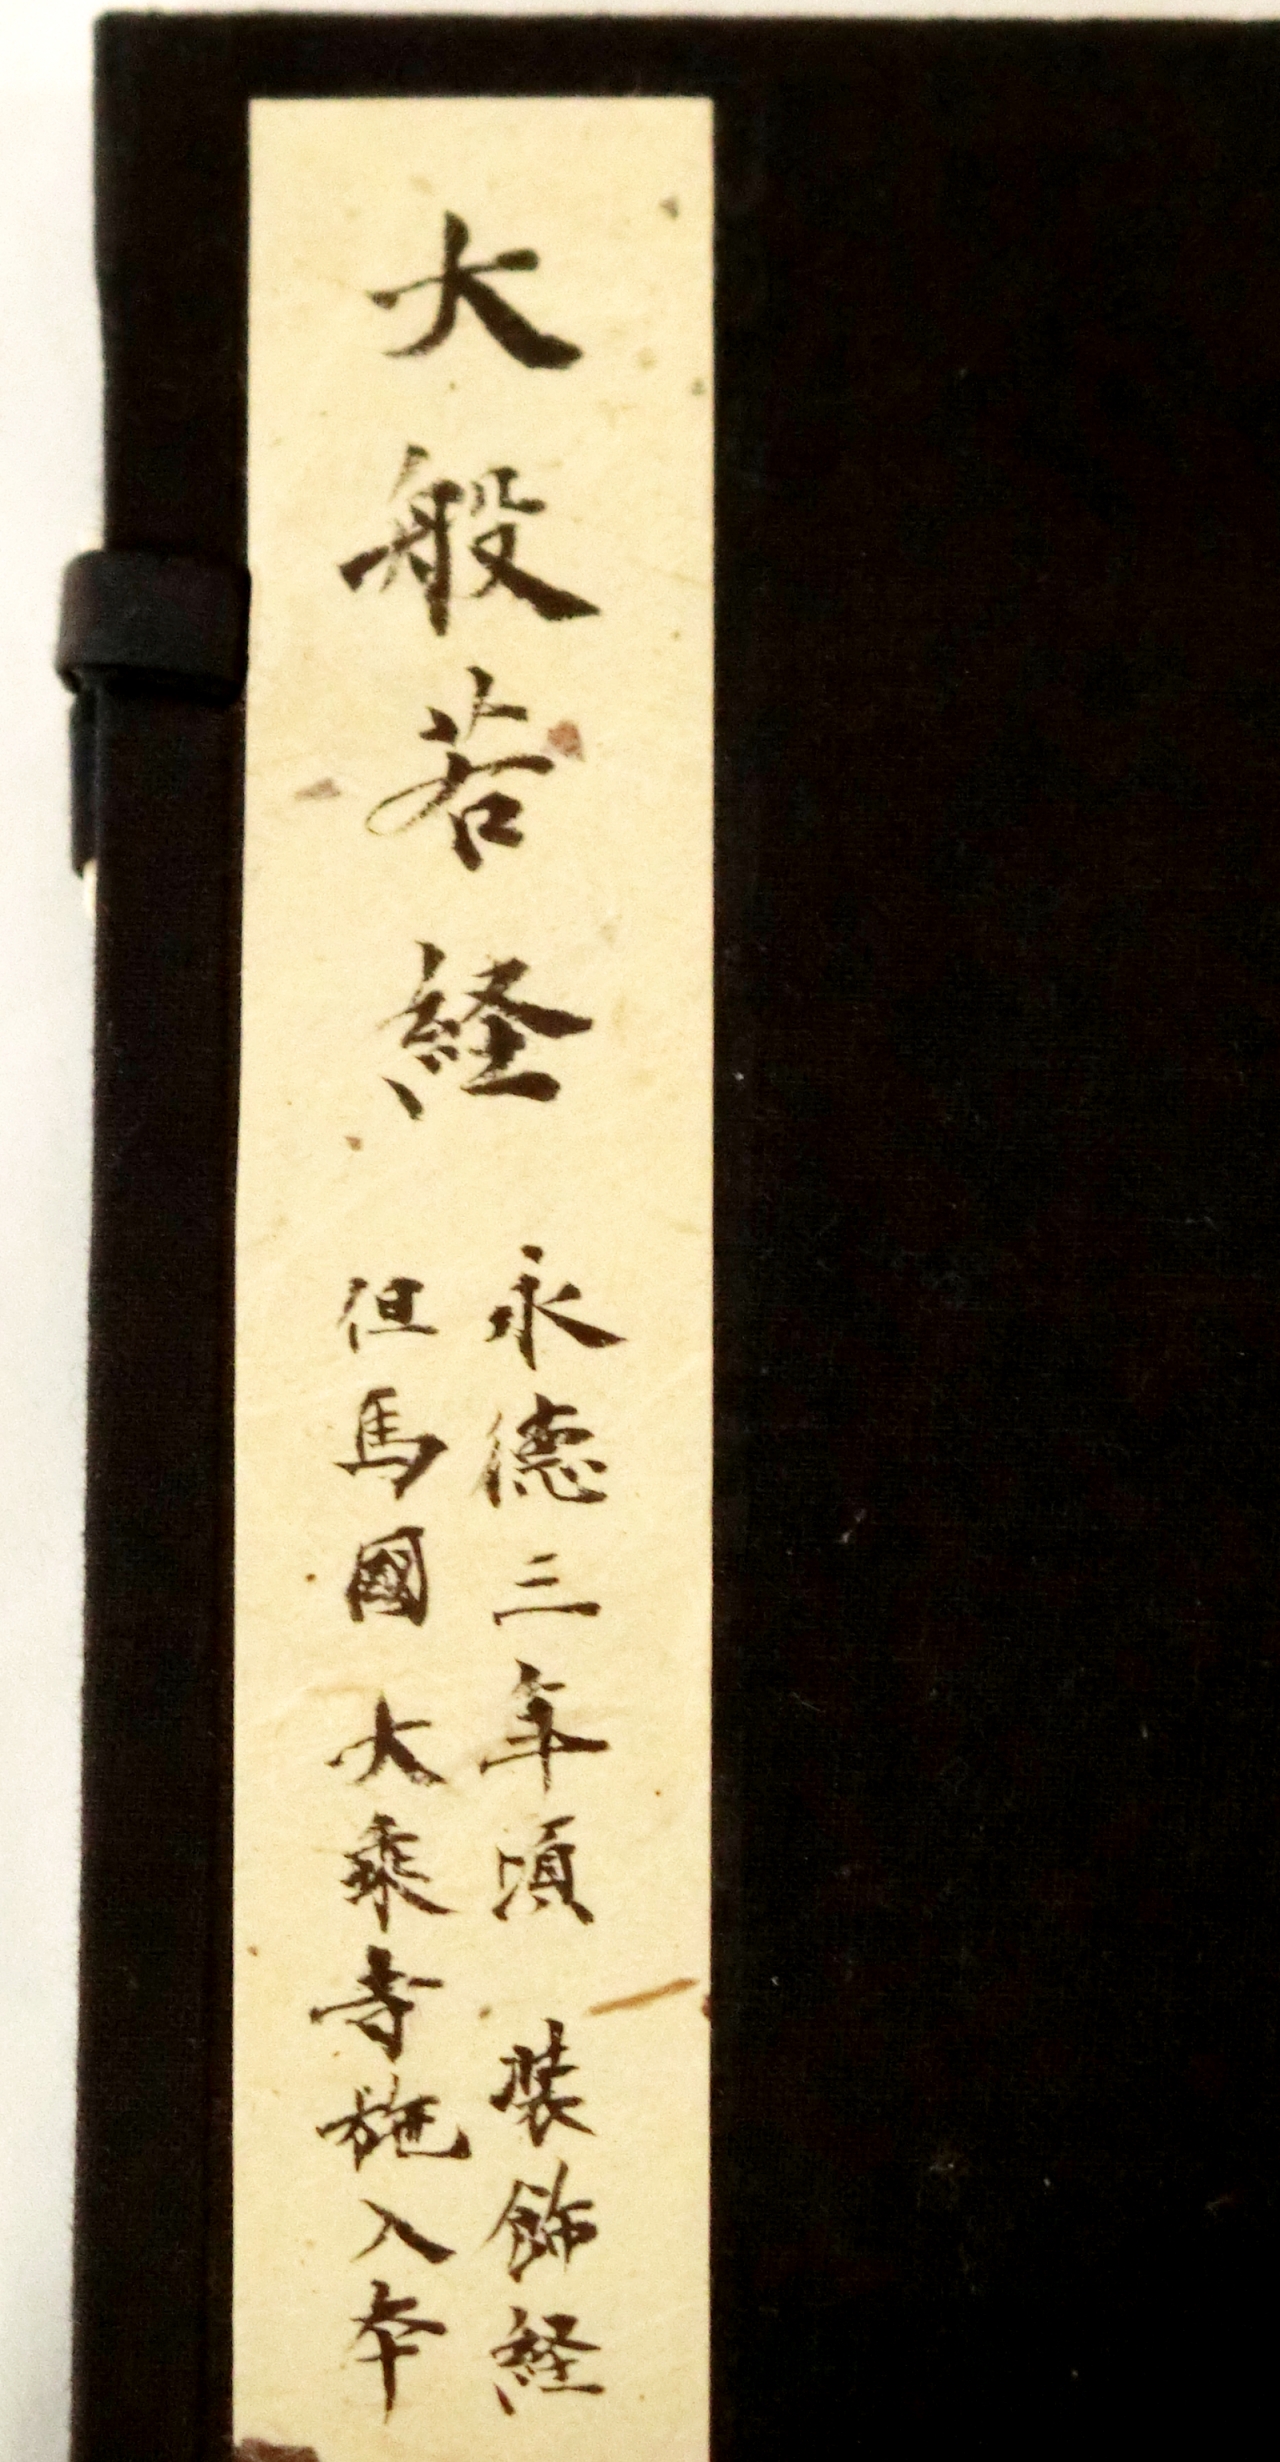 大般若経
永徳三年頃 装飾経
但馬國 大乘寺施入本